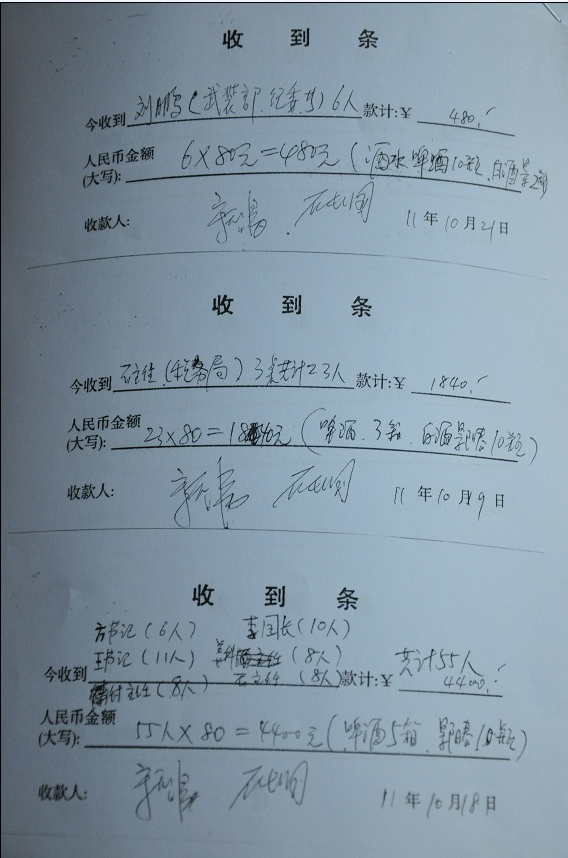 收到条
今收到 刘鹏(武装部.纪委等)6人 款计:¥ 480.
人民币金额
(大写): 6×80元=480元(酒水 啤酒10瓶.白酒景2瓶)
收款人: 11年10月21日
收到条
今收到 石主任(税务局)3桌共计23人 款计:¥ 1840.
人民币金额
(大写): 23×80=1840元(啤酒.3箱.白酒景酷10瓶)
收款人: 11年10月19日
收到条
方书记(6人) 李国长(10人)
王书记(11人) (8人) 共计55人
今收到 款计:¥ 4400.
付主任(8人) 石主任(8人)
人民币金额
(大写): 55人×80=4400元(啤酒5箱.瓶)
收款人: 11年10月18日